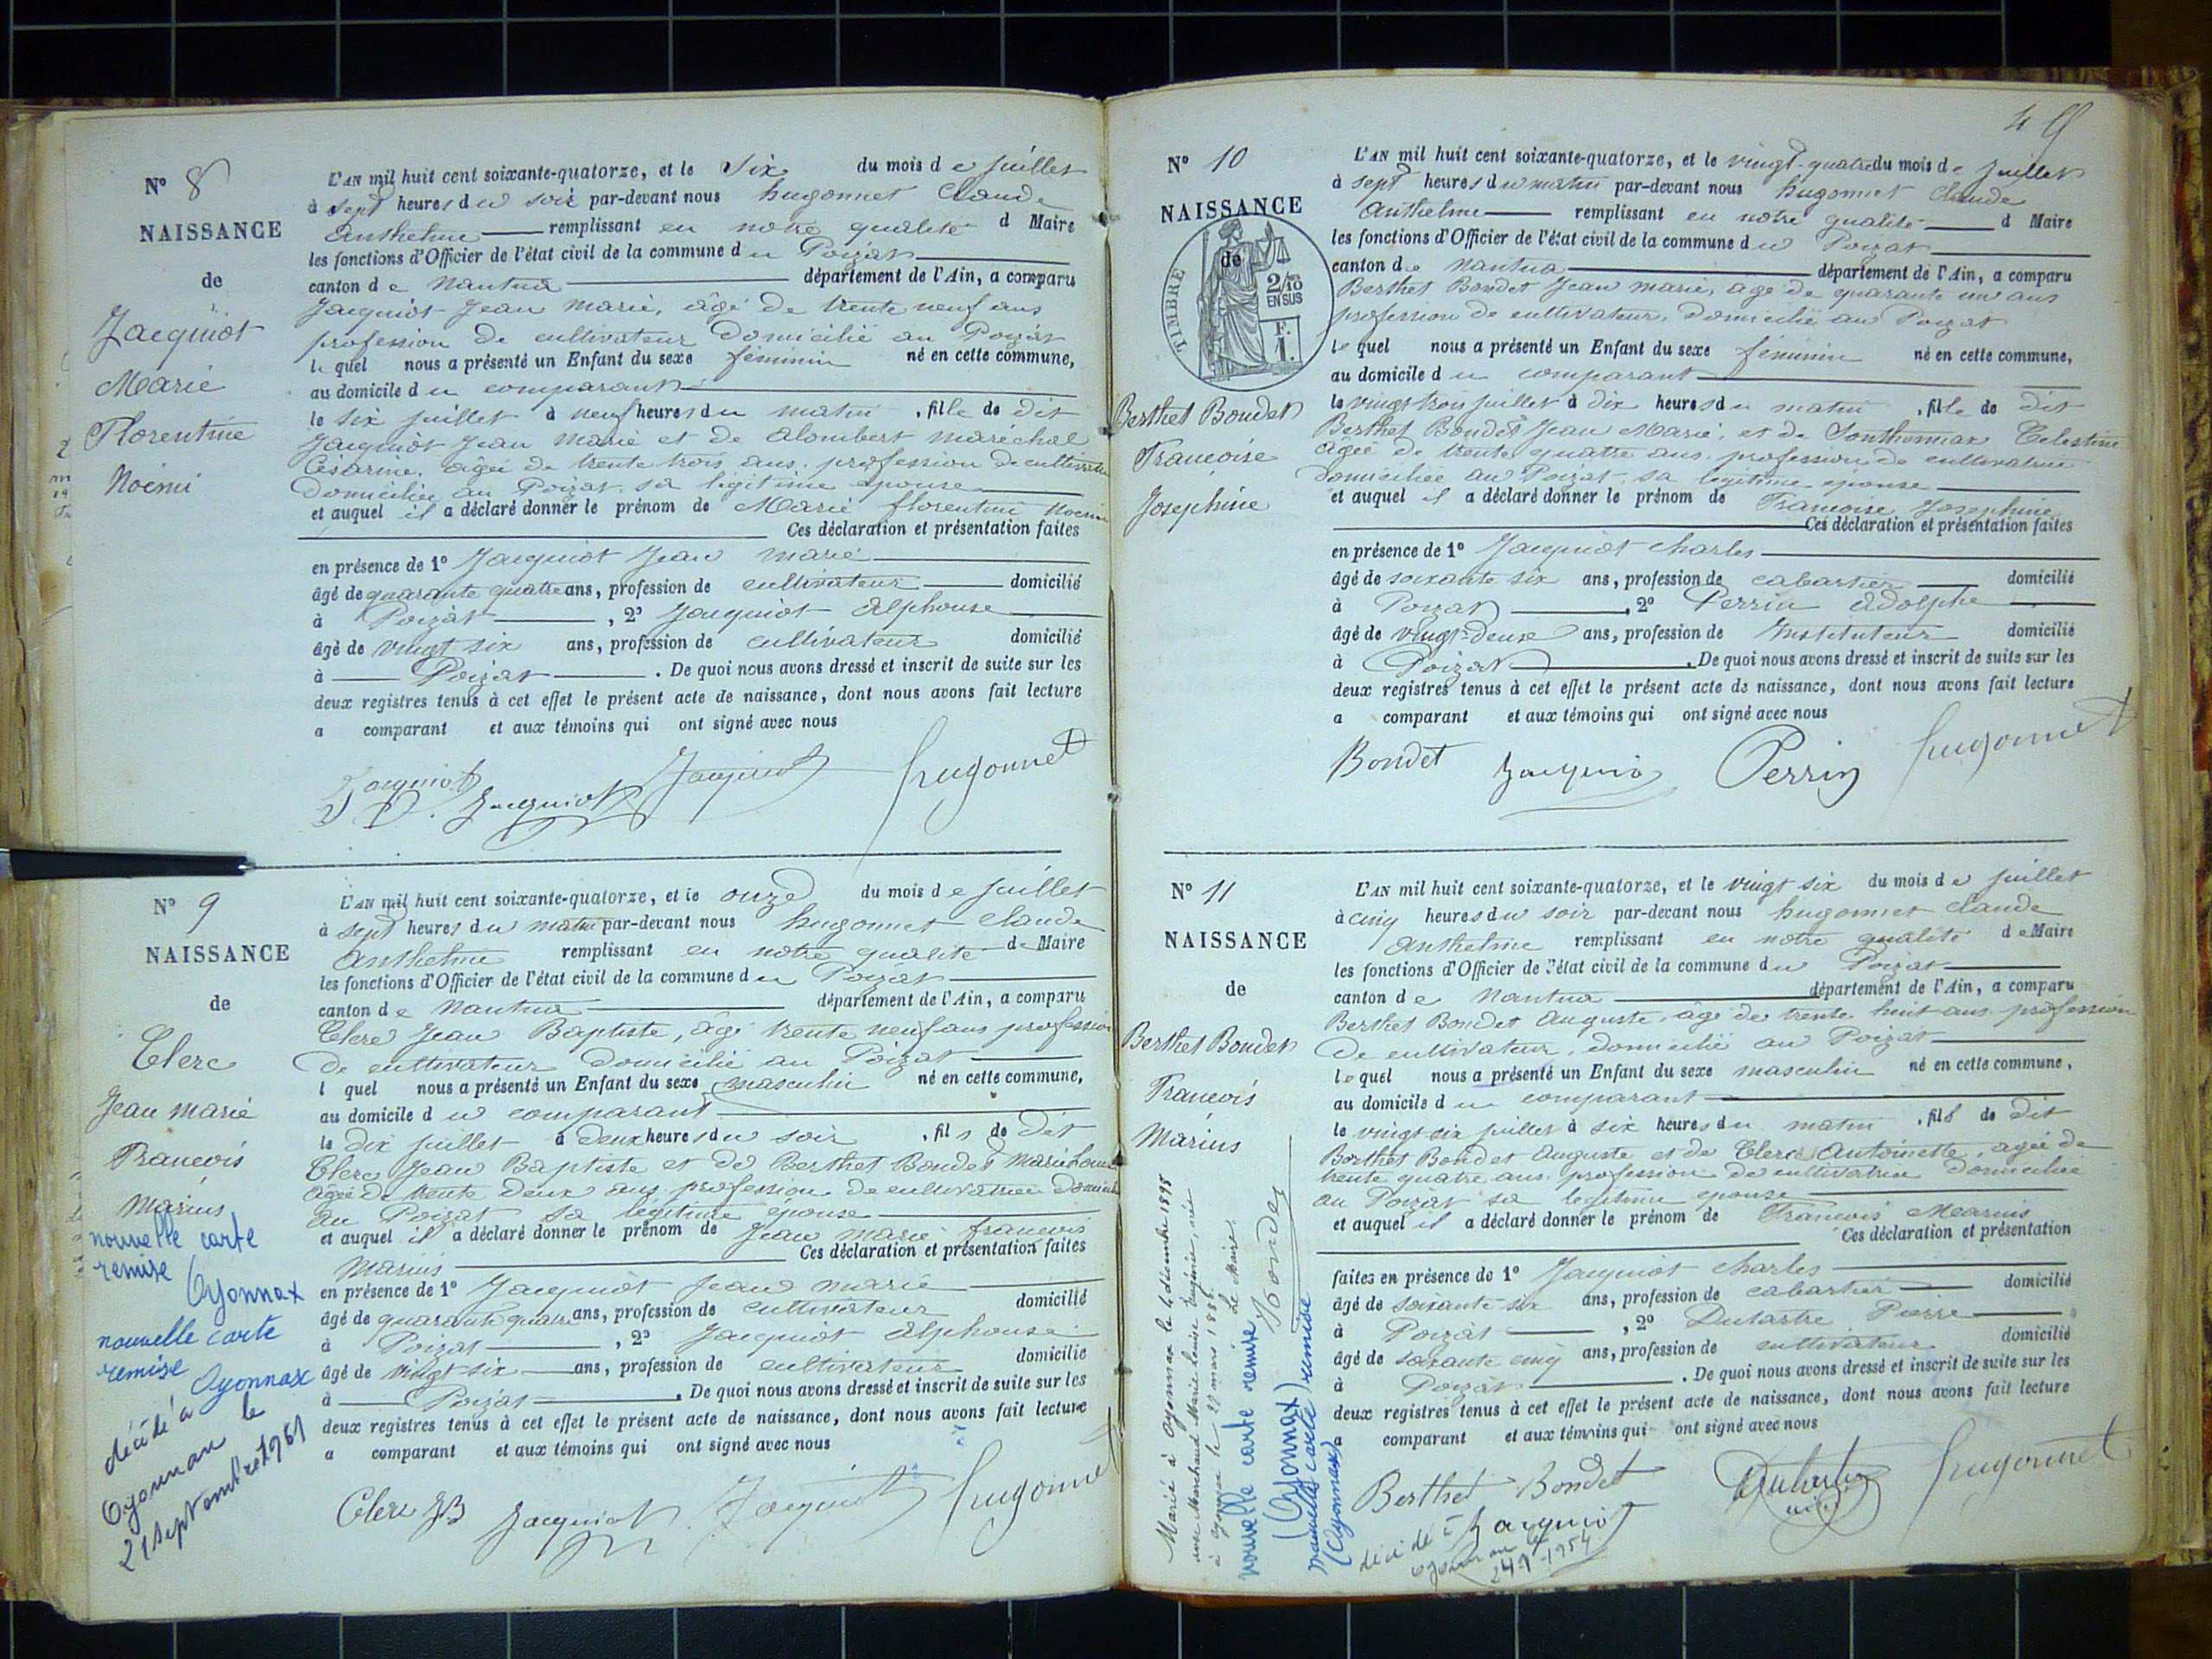 N° 8
NAISSANCE
de
Jacquiot
Marie
Florentine
Noémi
L'AN mil huit cent soixante-quatorze, et le Six du mois de juillet
à sept heures du soir par-devant nous hugonnet Claude
Anthelme remplissant en notre qualité d Maire
les fonctions d'Officier de l'état civil de la commune du Poizat
canton de Nantua département de l'Ain, a comparu
Jacquiot Jean Marie, âgé de trente neuf ans
profession de cultivateur domicilié au Poizat
le quel nous a présenté un Enfant du sexe féminin né en cette commune,
au domicile du comparant
le six juillet à neuf heures du matin , fille de dit
Jacquiot Jean Marie et de Alombert Maréchal
Césarine, âgée de trente trois ans, profession de cultivatrice
domiciliée au Poizat, sa légitime épouse
et auquel il a déclaré donner le prénom de Marie florentine Noemie
Ces déclaration et présentation faites
en présence de 1° Jacquiot Jean Marie
âgé de quarante quatre ans, profession de cultivateur domicilié
à Poizat , 2° Jacquiot Alphonse
âgé de vingt six ans, profession de cultivateur domicilié
à Poizat . De quoi nous avons dressé et inscrit de suite sur les
deux registres tenus à cet effet le présent acte de naissance, dont nous avons fait lecture
a comparant et aux témoins qui ont signé avec nous
Jacquiot Jacquiot Jacquiot hugonnet
N° 9
NAISSANCE
de
Clerc
Jean Marie
Francois
Marius
nouvelle carte
remise Oyonnax
nouvelle carte
remise Oyonnax
décédé à
Oyonnax le
21 septembre 1961
L'AN mil huit cent soixante-quatorze, et le onze du mois de juillet
à sept heures du matin par-devant nous hugonnet Claude
Anthelme remplissant en notre qualité de Maire
les fonctions d'Officier de l'état civil de la commune du Poizat
canton de Nantua département de l'Ain, a comparu
Clerc Jean Baptiste, âgé trente neuf ans profession
de cultivateur domicilié au Poizat
l quel nous a présenté un Enfant du sexe masculin né en cette commune,
au domicile du comparant
le dix juillet à deux heures du soir , fils de dit
Clerc Jean Baptiste et de Berthet Bondet Marie Louise
âgée de trente deux ans profession de cultivatrice domiciliée
au Poizat sa légitime épouse
et auquel il a déclaré donner le prénom de Jean Marie francois
Marius Ces déclaration et présentation faites
en présence de 1° Jacquiot Jean Marie
âgé de quarante quatre ans, profession de cultivateur domicilié
à Poizat , 2° Jacquiot Alphonse
âgé de vingt six ans, profession de cultivateur domicilié
à Poizat . De quoi nous avons dressé et inscrit de suite sur les
deux registres tenus à cet effet le présent acte de naissance, dont nous avons fait lecture
a comparant et aux témoins qui ont signé avec nous
Clerc JB Jacquiot Jacquiot hugonnet
49
N° 10
NAISSANCE
de
TIMBRE
2/10
EN SUS
F.
1.
Berthet Bondet
Francoise
Josephine
L'AN mil huit cent soixante-quatorze, et le vingt-quatre du mois de juillet
à sept heures du matin par-devant nous hugonnet Claude
Anthelme remplissant en notre qualité d Maire
les fonctions d'Officier de l'état civil de la commune du Poizat
canton de Nantua département de l'Ain, a comparu
Berthet Bondet Jean Marie, âgé de quarante un ans
profession de cultivateur, domicilié au Poizat
le quel nous a présenté un Enfant du sexe féminin né en cette commune,
au domicile du comparant
le vingt trois juillet à dix heures du matin , fille de dit
Berthet Bondet Jean Marie, et de Sonthonnax Celestine
âgée de trente quatre ans, profession de cultivatrice
domiciliée au Poizat, sa légitime épouse
et auquel il a déclaré donner le prénom de Francoise Josephine
Ces déclaration et présentation faites
en présence de 1° Jacquiot Charles
âgé de soixante six ans, profession de cabartier domicilié
à Poizat , 2° Perrin Adolphe
âgé de vingt-deux ans, profession de Instituteur domicilié
à Poizat . De quoi nous avons dressé et inscrit de suite sur les
deux registres tenus à cet effet le présent acte de naissance, dont nous avons fait lecture
a comparant et aux témoins qui ont signé avec nous
Bondet Jacquiot Perrin hugonnet
N° 11
NAISSANCE
de
Berthet Bondet
Francois
Marius
Marié à Oyonnax le 4 décembre 1898
avec Marchand Marie Louise Eugénie, née
à Oyonnax le 29 mars 1886
Le Maire
Bondet
nouvelle carte remise
(Oyonnax)
nouvelle carte remise
(Oyonnax)
L'AN mil huit cent soixante-quatorze, et le vingt six du mois de juillet
à cinq heures du soir par-devant nous hugonnet Claude
Anthelme remplissant en notre qualité de Maire
les fonctions d'Officier de l'état civil de la commune du Poizat
canton de Nantua département de l'Ain, a comparu
Berthet Bondet Auguste, âgé de trente huit ans profession
de cultivateur, domicilié au Poizat
le quel nous a présenté un Enfant du sexe masculin né en cette commune,
au domicile du comparant
le vingt six juillet à six heures du matin , fils de dit
Berthet Bondet Auguste et de Clerc Antoinette, âgée de
trente quatre ans profession de cultivatrice domiciliée
au Poizat sa légitime épouse
et auquel il a déclaré donner le prénom de Francois Marius
Ces déclaration et présentation
faites en présence de 1° Jacquiot Charles
âgé de soixante-six ans, profession de cabartier domicilié
à Poizat , 2° Dutartre Pierre
âgé de soixante cinq ans, profession de cultivateur domicilié
à Poizat . De quoi nous avons dressé et inscrit de suite sur les
deux registres tenus à cet effet le présent acte de naissance, dont nous avons fait lecture
a comparant et aux témoins qui ont signé avec nous
Berthet Bondet Jacquiot hugonnet
décédé à
Oyonnax le
24-1-1954